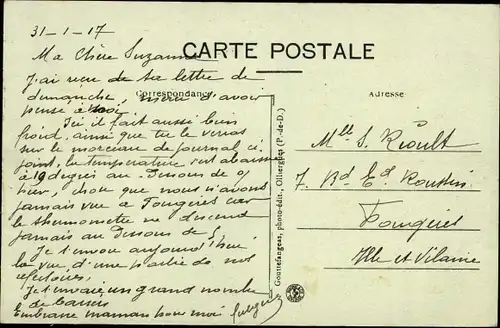 31-1-17
Ma Chère Suzanne
CARTE POSTALE
J'ai reçu de ta lettre de
dimanche, merci d'avoir
pensé à moi.
Correspondance
Adresse
Ici il fait aussi bien
froid, ainsi que tu le verras
sur le morceau de journal ci
joint, la température s'est abaissée
à 19 degrés au-dessous de 0,
hier, chose que nous n'avons
jamais vue à Fougères car
le thermomètre ne descend
jamais au dessous de
Je t'envoie aujourd'hui
la vue d'une partie de nos
réfectoires.
Je t'envoie un grand nombre
de baisers
Embrasse maman pour moi
Gouttefangeas, photo-édit., Olliergues (P.-de-D.)
Mlle S. Rioult
7, Bd Ed. Roussin
Fougères
Ille et Vilaine